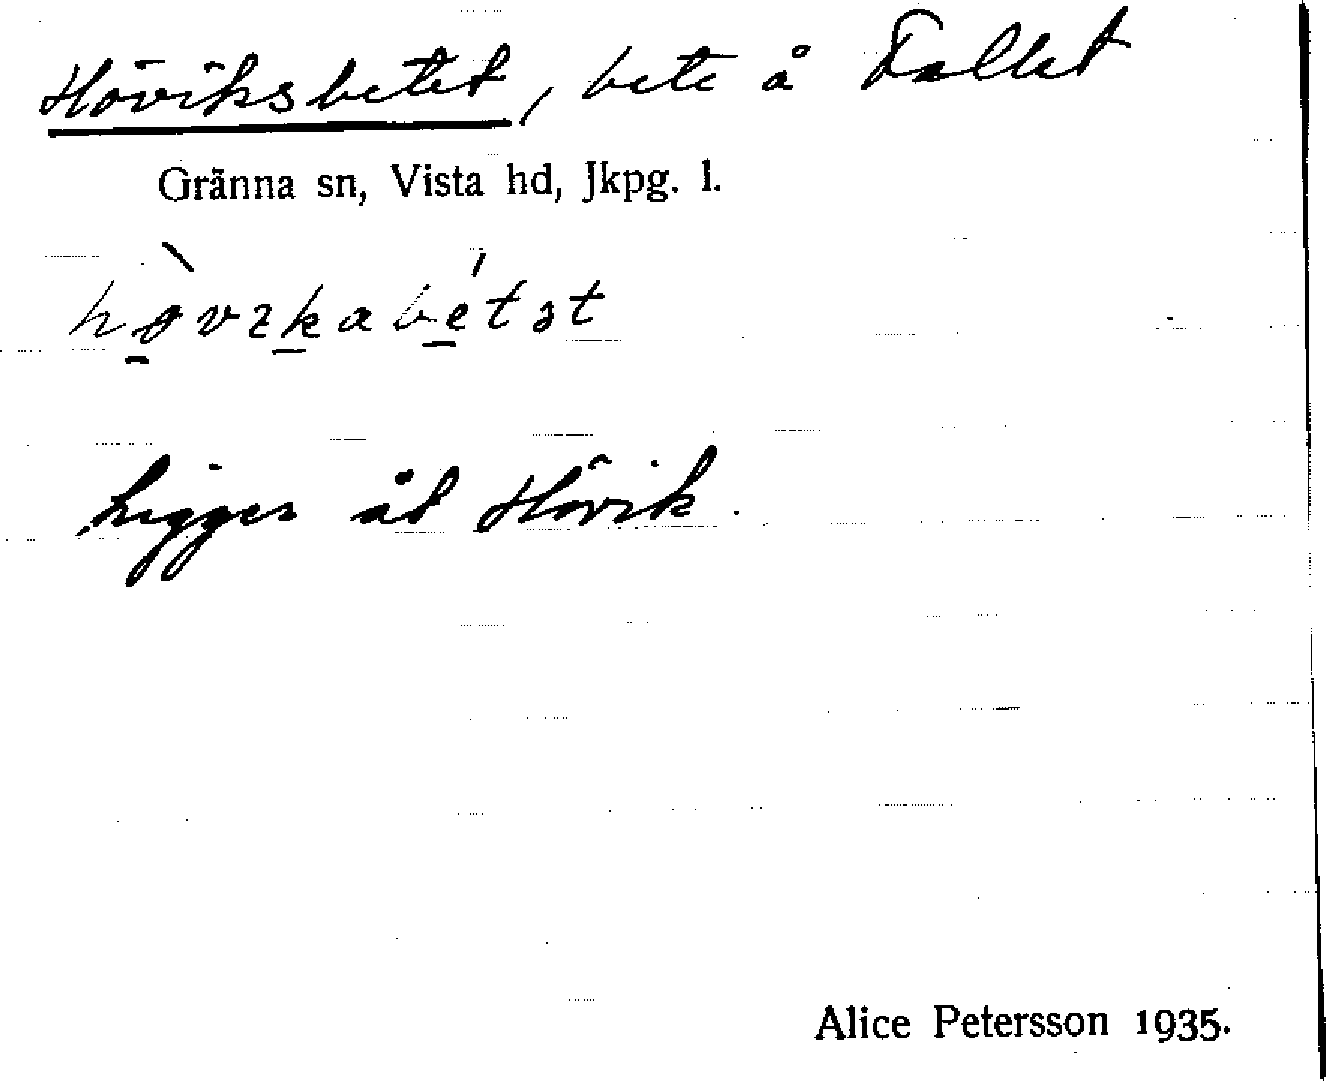 Höviksbetet, bete å Fallet
Gränna sn, Vista hd, Jkpg. l.
hø̀vɩkabétət
Ligger åt Hövik.
Alice Petersson 1935.